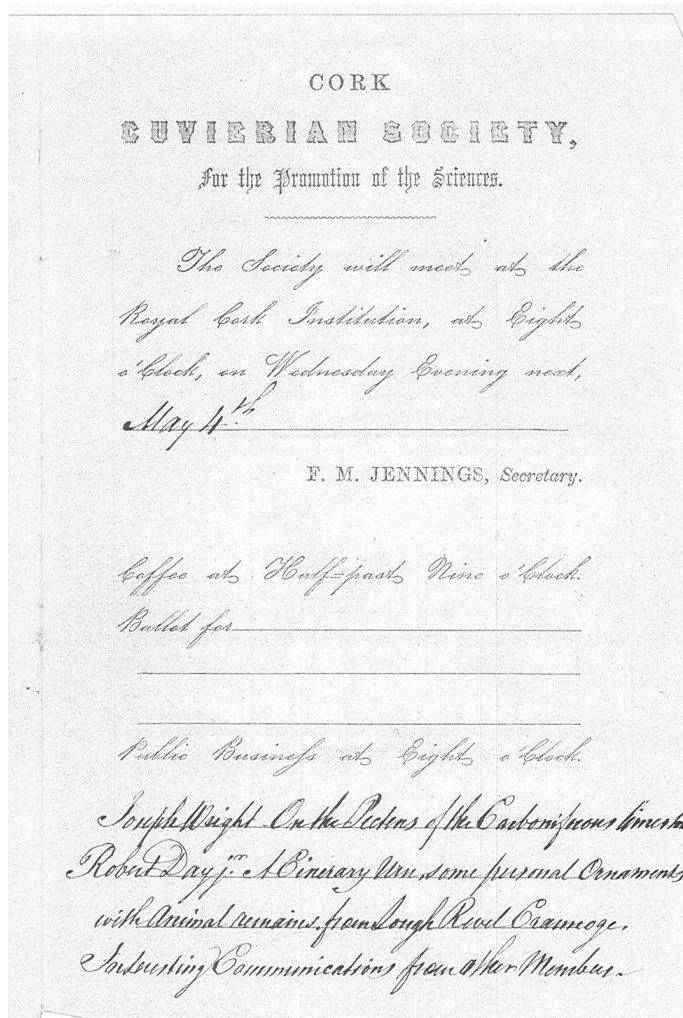 CORK
CUVIERIAN SOCIETY,
For the Promotion of the Sciences.
The Society will meet at the
Royal Cork Institution, at Eight
o'Clock, on Wednesday Evening next,
May 4th
F. M. JENNINGS, Secretary.
Coffee at Half-past Nine o'Clock.
Ballot for
Public Business at Eight o'Clock.
Joseph Wright On the Pectens of the Carboniferous
Robert Day jnr. A Cinerary Urn, some personal Ornaments
with Animal remains, from Lough Revel Crannoge.
Interesting Communications from other Members.